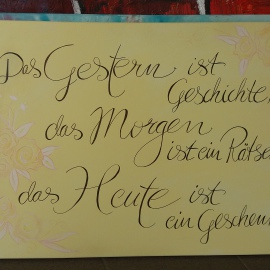 Das Gestern ist
Geschichte,
das Morgen
ist ein Rätsel
das Heute ist
ein Geschenk